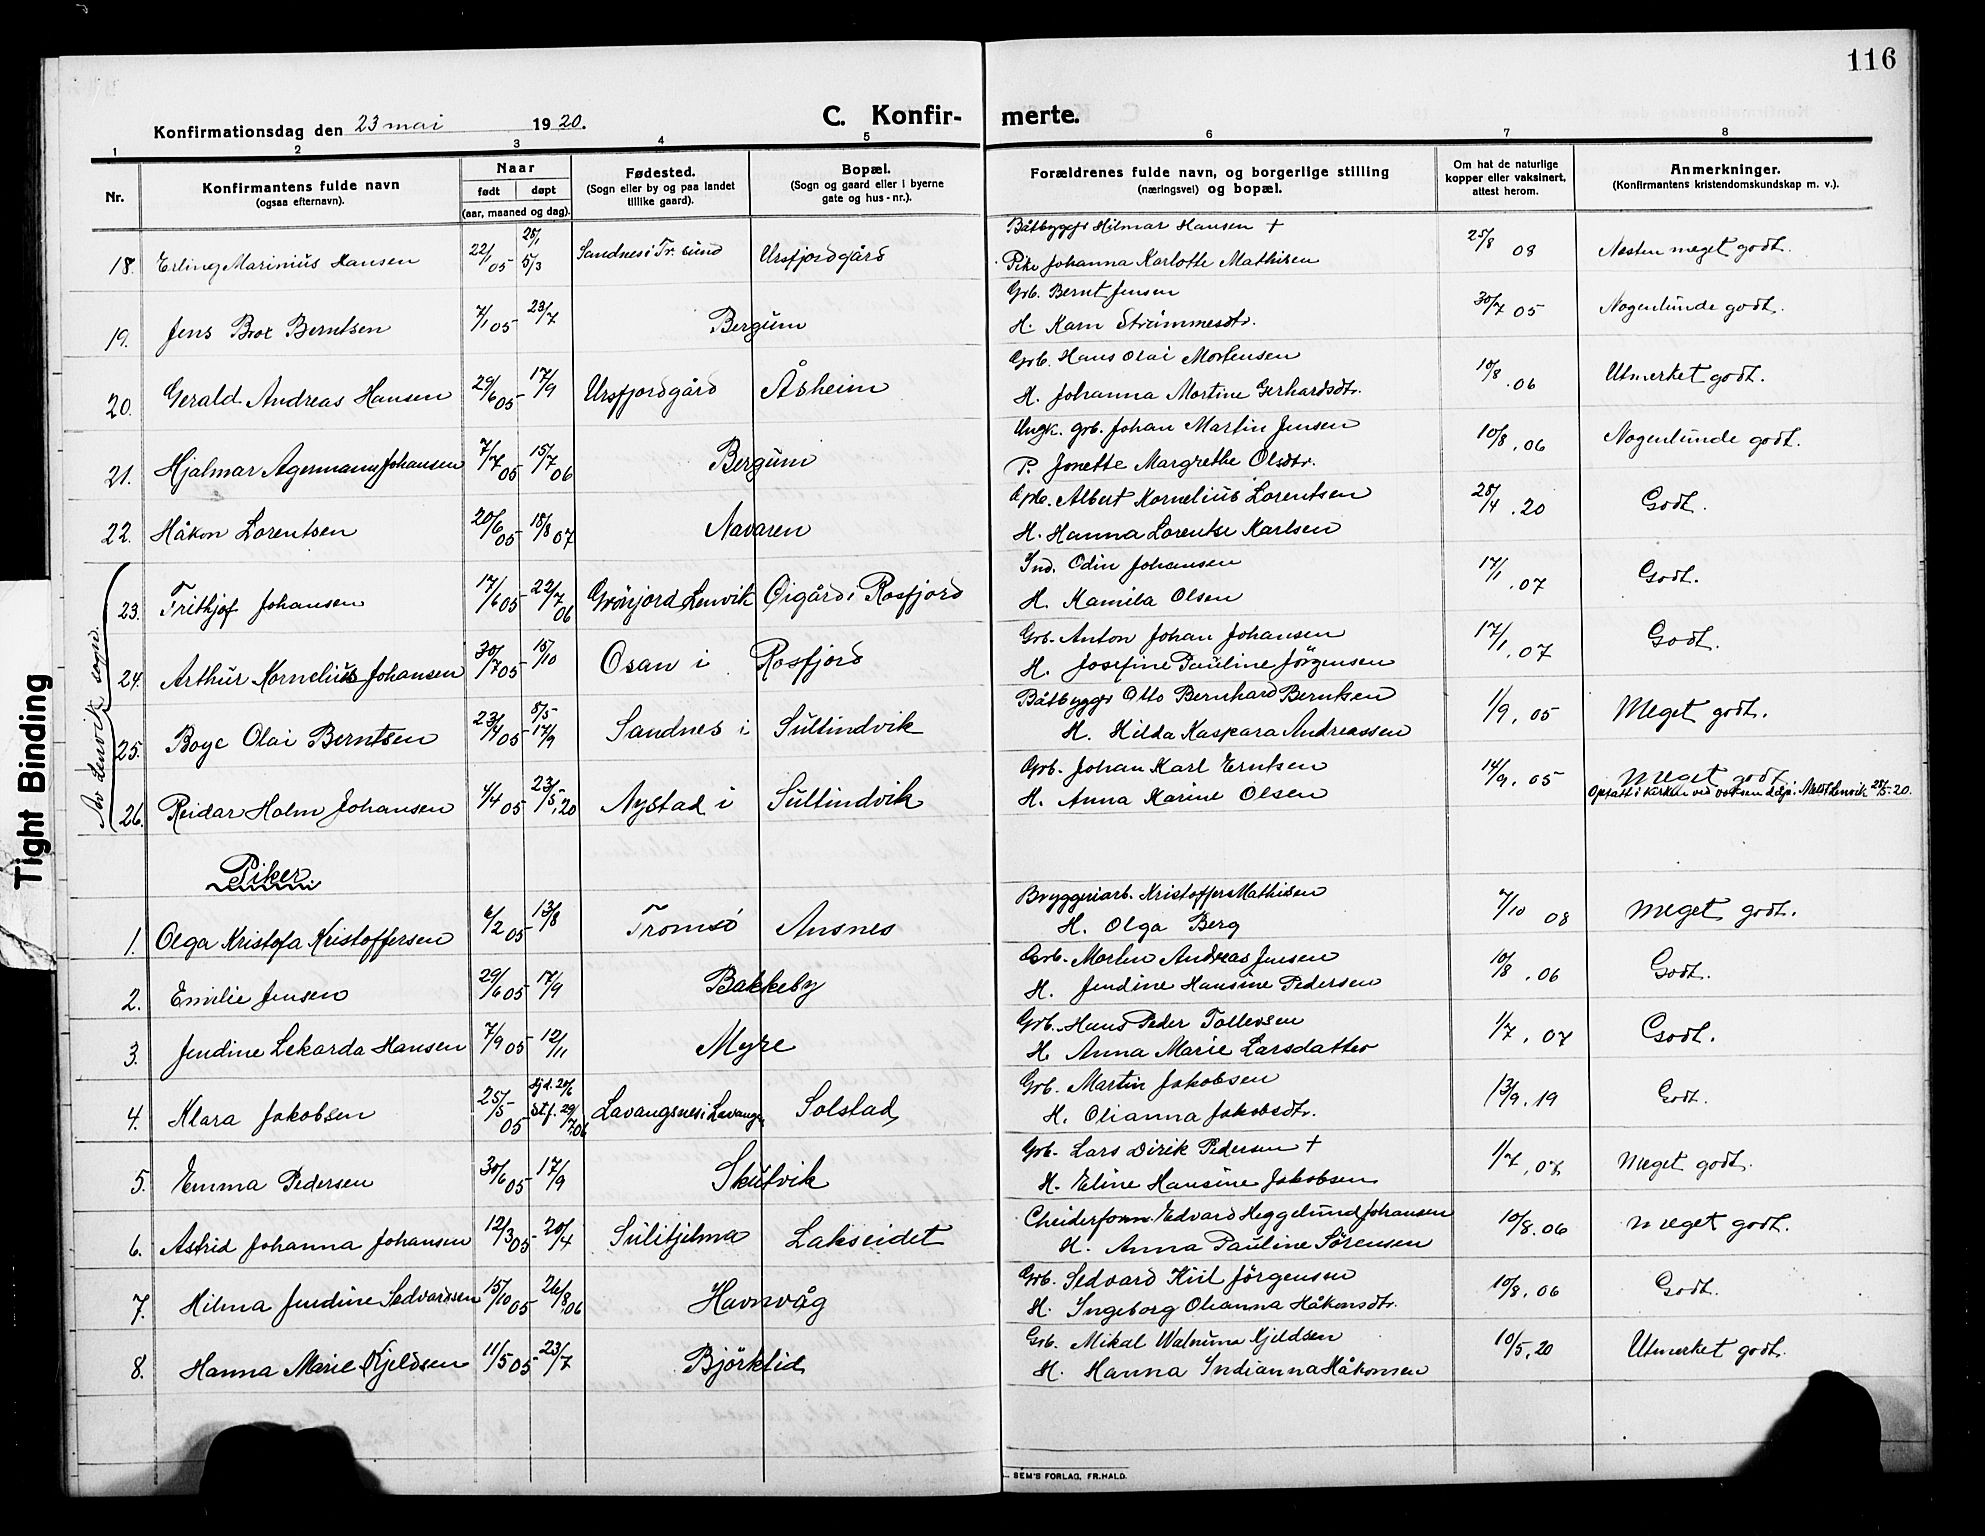 116
Konfirmationsdag den 23 mai 1920.
C. Konfir- merte.
1 2 3 4 5 6 7 8
Nr.
Konfirmantens fulde navn
(ogsaa efternavn).
Naar
født døpt
(aar, maaned og dag).
Fødested.
(Sogn eller by og paa landet
tillike gaard).
Bopæl.
(Sogn og gaard eller i byerne
gate og hus-nr.).
Forældrenes fulde navn, og borgerlige stilling
(næringsvei) og bopæl.
Om hat de naturlige
kopper eller vaksinert,
attest herom.
Anmerkninger.
(Konfirmantens kristendomskundskap m. v.).
Båtbyggr Hilmar Hansen +
18. Erling Marinius Hansen 22/1 05 28/1 5/3 Sandnes i Tr. sund Ursfjordgård Pike Johanna Karlotte Mathisen 25/8 08 Nesten meget godt.
Grb. Bernt Jensen
19. Jens Brox Berntsen 7/1 05 23/7 Bergum H. Karn Strømmesdtr. 30/7 05 Nogenlunde godt.
Grb. Hans Olai Mortensen
20. Gerald Andreas Hansen 29/6 05 17/9 Ursfjordgård Åsheim H. Johanna Martine Gerhardsdtr. 10/8 .06 Utmerket godt.
Ungk. grb. Johan Martin Jensen
21. Hjalmar Agermann Johansen 7/7 05 15/7 06 Bergum P. Jonette Margrethe Olsdtr. 10/8, 06 Nogenlunde godt.
Grb. Albert Kornelius Lorentsen
22. Håkon Lorentsen 20/6 05 18/8 07 Navaren H. Hanna Lorentse Karlsen 28/4 .20 Godt.
Av Lenvik sogn.
Ind. Odin Johansen
23. Frithjof Johansen 17/6 05 22/7 06 Grönjord Lenvik Øigård i Rosfjord H. Kamila Olsen 17/1 .07 Godt.
Grb. Anton Johan Johansen
24. Arthur Kornelius Johansen 30/7 05 15/10 Osan i Rosfjord H. Josefine Pauline Jörgensen 17/1, 07 Godt.
Båtbyggr Otto Bernhard Berntsen
25. Boye Olai Berntsen 23/4 05 8/5 17/9 Sandnes i Sultindvik H. Hilda Kaspara Andreassen 1/9, 05 Meget godt.
Grb. Johan Karl Erntsen
26. Reidar Holm Johansen 4/4 05 23/5, 20 Nystad i Sultindvik H. Anna Karine Olsen 14/9, 05 Meget godt
20.
Piker
Bryggeriarb. Kristoffer Mathisen
1. Olga Kristofa Kristoffersen 6/2 05 13/8 Tromsö Ansnes H. Olga Berg 7/10 08 Meget godt.
Grb. Morten Andreas Jensen
2. Emilie Jensen 29/6 05 17/9 Bakkeby H. Jendine Hansine Pedersen 10/8 .06 Godt.
Grb. Hans Peder Tollevsen
3. Jendine Lekarda Hansen 7/9 05 12/11 Myre H. Anna Marie Larsdatter 1/7, 07 Godt.
Grb. Martin Jakobsen
4. Klara Jakobsen 25/5 05 hjd. 20/6 Stf. 29/7 06 Lavangsnes i Lavangen Solstad H. Olianna Jakobsdtr. 13/9, 19 Godt.
Grb. Lars Dirik Pedersen +
5. Emma Pedersen 30/6 05 17/9 Skutvik H. Eline Hansine Jakobsen 1/7, 07 Meget godt.
Edvard Heggelund Johansen
6. Astrid Johanna Johansen 12/3 05 20/4 Sulitjelma Lakseidet H. Anna Pauline Sörensen 10/8.06 Meget godt.
Grb. Sedvard Kiil Jörgensen
7. Hilma Jendine Sedvardsen 15/10 05 26/8 06 Havnvåg H. Ingeborg Olianna Håkonsdtr. 10/8.06 Godt.
Grb. Mikal Walnum Kjeldsen
8. Hanna Marie Kjeldsen 11/5 05 23/7 Björklid H. Hanna Indianna Håkonsen 10/5, 20 Utmerket godt.
SEM'S FORLAG, FR.HALD.
Tight Binding